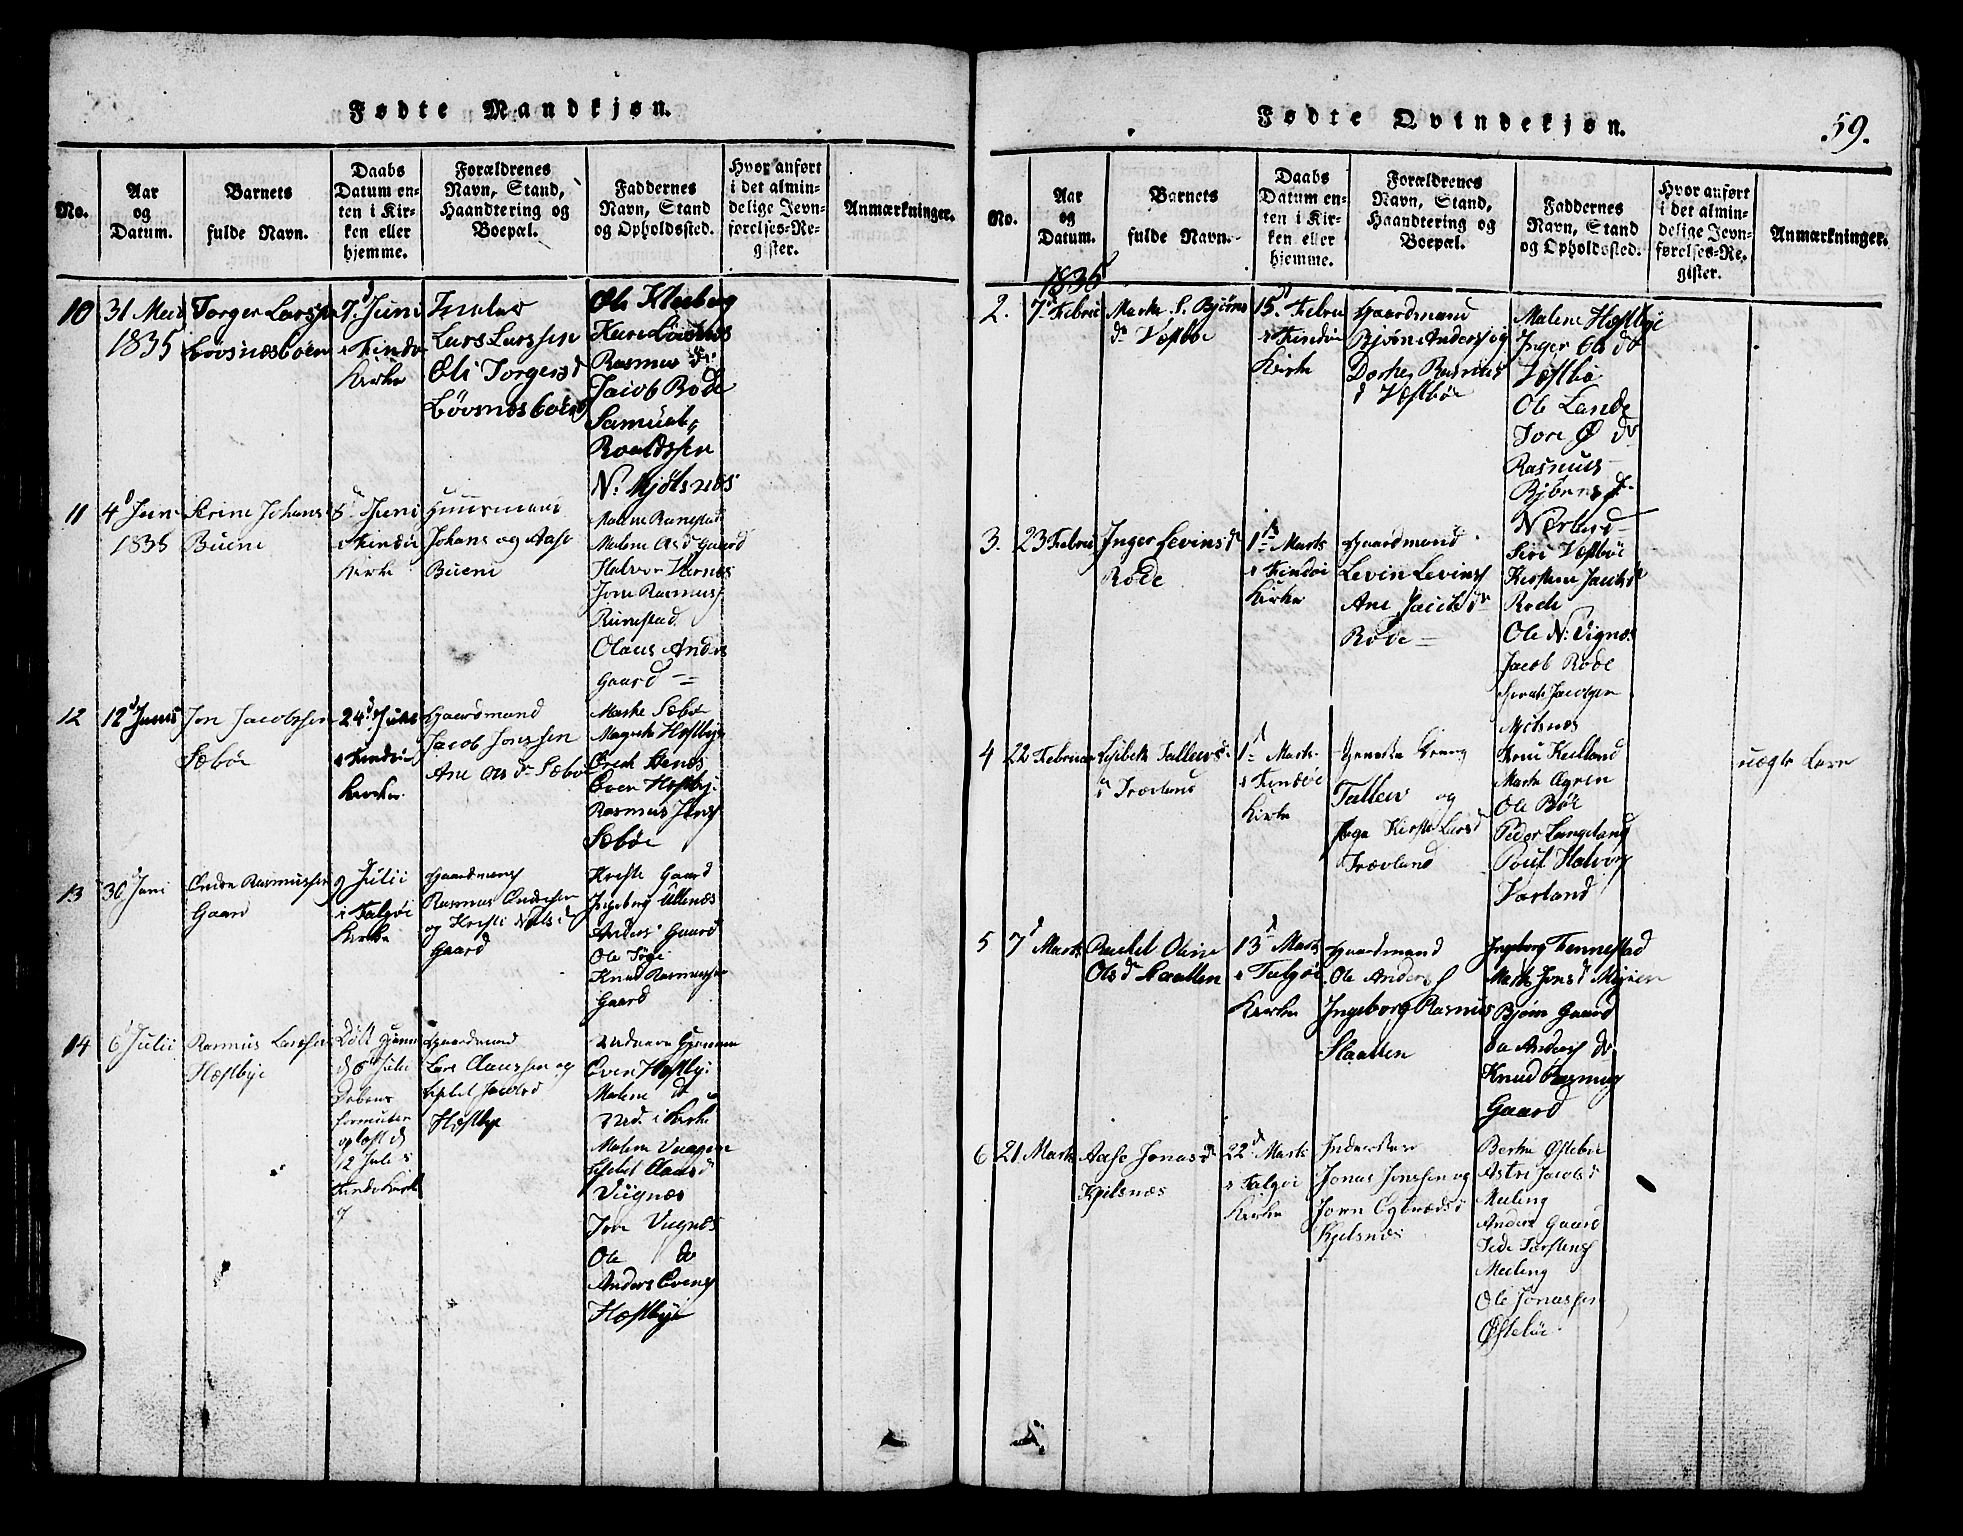 Fødte Mandkjøn.
No.
Aar og Datum.
Barnets fulde Navn.
Daabs Datum enten i Kirken eller hjemme.
Forældrenes Navn, Stand, Haandtering og Boepæl.
Faddernes Navn, Stand og Opholdssted.
Hvor anført i det almindelige Jevnførelses-Register.
Anmærkninger.
10
31 Mai
1835
Torger Larssen
Løvsnæsbøen
7d Juni
i Findø
Kirke
Inder
Lars Larssen
Oli Torgersd
Løvsnæsbøen
Ole Kleberg
Kari Løvsnæs
Rasmus do
Jacob Rode
Samuel
Roaldssen
N. Kjølsnæs
11
4d Juni
1835
Serine Johans
Bueni
8d Juni
i Findø
Kirke
Huusmand
Johans og Aase
Bueni
Malene Runestad
Malene Olsd Gaard
Halvor Varnæs
Jone Rasmuss
Runestad
Olaus Anders
Gaard
12
12d Junis
Jon Jacobssen
Sæbøe
24d Juli
i Findøe
Kirke
Gaardmand
Jacob Jonssen
Ane Olsd Sæbø
Marthe Sæbø
Magrete Hestbye
Endre Stenes
Even Hestbye
Rasmus Jons
Sæbøe
13
30 Juni
Endre Rasmussen
Gaard
9 Julii
i Talgøe
Kirke
Gaardmand
Rasmus Endresen
og Kirsti Nilsd
Gaard
Kirsti Gaard
Ingeborg Ullenæs
Anders Gaard
Ole Tøge
Knud Rasmussen
Gaard
14
6 Julii
Rasmus Larssen
Hestbye
Døbt hjemme
d 6 Julii
Daabens
formular
oplæst d
12 Julii i
Findø Kirke
Gaardmand
Lars Claussen og
Sibel Jacobsd
Hestbye
Ved navn hjemme
Even Hestbye
Malene d
Ved. i Kirke
Malene Vaagene
Sibel Clausd
Viignæs
Jon Viignæs
Ole do
Anders Evens
Hestbye
Fødte Qvindekjøn.
59.
No.
Aar og Datum.
Barnets fulde Navn.
Daabs Datum enten i Kirken eller hjemme.
Forældrenes Navn, Stand, Haandtering og Boepæl.
Faddernes Navn, Stand og Opholdssted.
Hvor anført i det almindelige Jevnførelses-Register.
Anmærkninger.
1835
2.
7d Febru
Marthe S. Bjørns
dr Vestbøe
15d Febru
i Findøe
Kirke
Gaardmand
Bjørn Anders og
Dorthe Rasmus
d Vestbøe
Malene Hestbye
Inger Olsdr
Vestbø
Ole Lande
Tore Ø do
Rasmus
Bjørns do
Nærland
3.
23 Febru
Inger Levinsdr
Rode
1d Marts
i Findøe
Kirke
Gaardmand
Levin Levins
Ane Jacobsdr
Rode
Siri Vestbøe
Kirstine Jacobsd
Rode
Ole N. Vignæs
Jacob Rode
Jacobsen
Kjelsnæs
4
22 Februar
Lisbeth Tallevs
dr Trævland
1d Marts
i Findøe
Kirke
Tallev og
Kirsti Larsd
Trævland
Kielland
Marthe
Ole Bøe
Peder Langeland
Poul Halvors
Varland
uægte
5
7d Marts
Rachel Oline
Olsdr Slaatten
13d Marts
i Talgøe
Kirke
Gaardmand
Ole Anders
Ingeborg Rasmus
Slaatten
Ingeborg Tennestad
Marthe Jonsd
Bjørn Gaard
Anders do
Knud Rasmus
Gaard
6
21 Marts
Aase Jonasdr
Kjelsnæs
22d Marts
i Talgøe
Kirke
Inderster
Jonas Jonssen og
Kjelsnæs
Berthe Østebøe
Astri Jacobsd
Meling
Anders Gaard
Torstens
Meling
Ole Jonassen
Østebøe